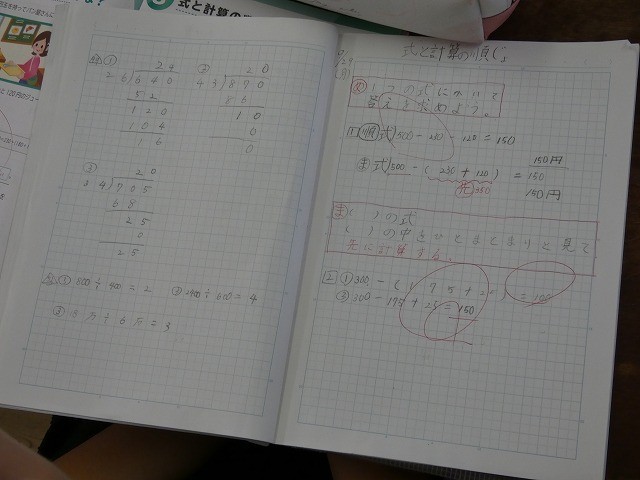 式と計算の
① 24
26)640
52
120
104
16
② 20
43)870
86
10
0
0
③ 20
34)705
68
25
0
25
① 800÷400=2 ② 2400÷600=4
③ 18万÷6万=3
式と計算の順じょ
1つの式にかいて
答えを求めよう。
1 順 式)500-230-120=150
150円
式)500-(230+120)=150
先350 150円
ま ( )の式
( )の中をひとまとまりと見て
先に計算する。
2 ① 300-(175+25)=100
③ 300-175+25=150